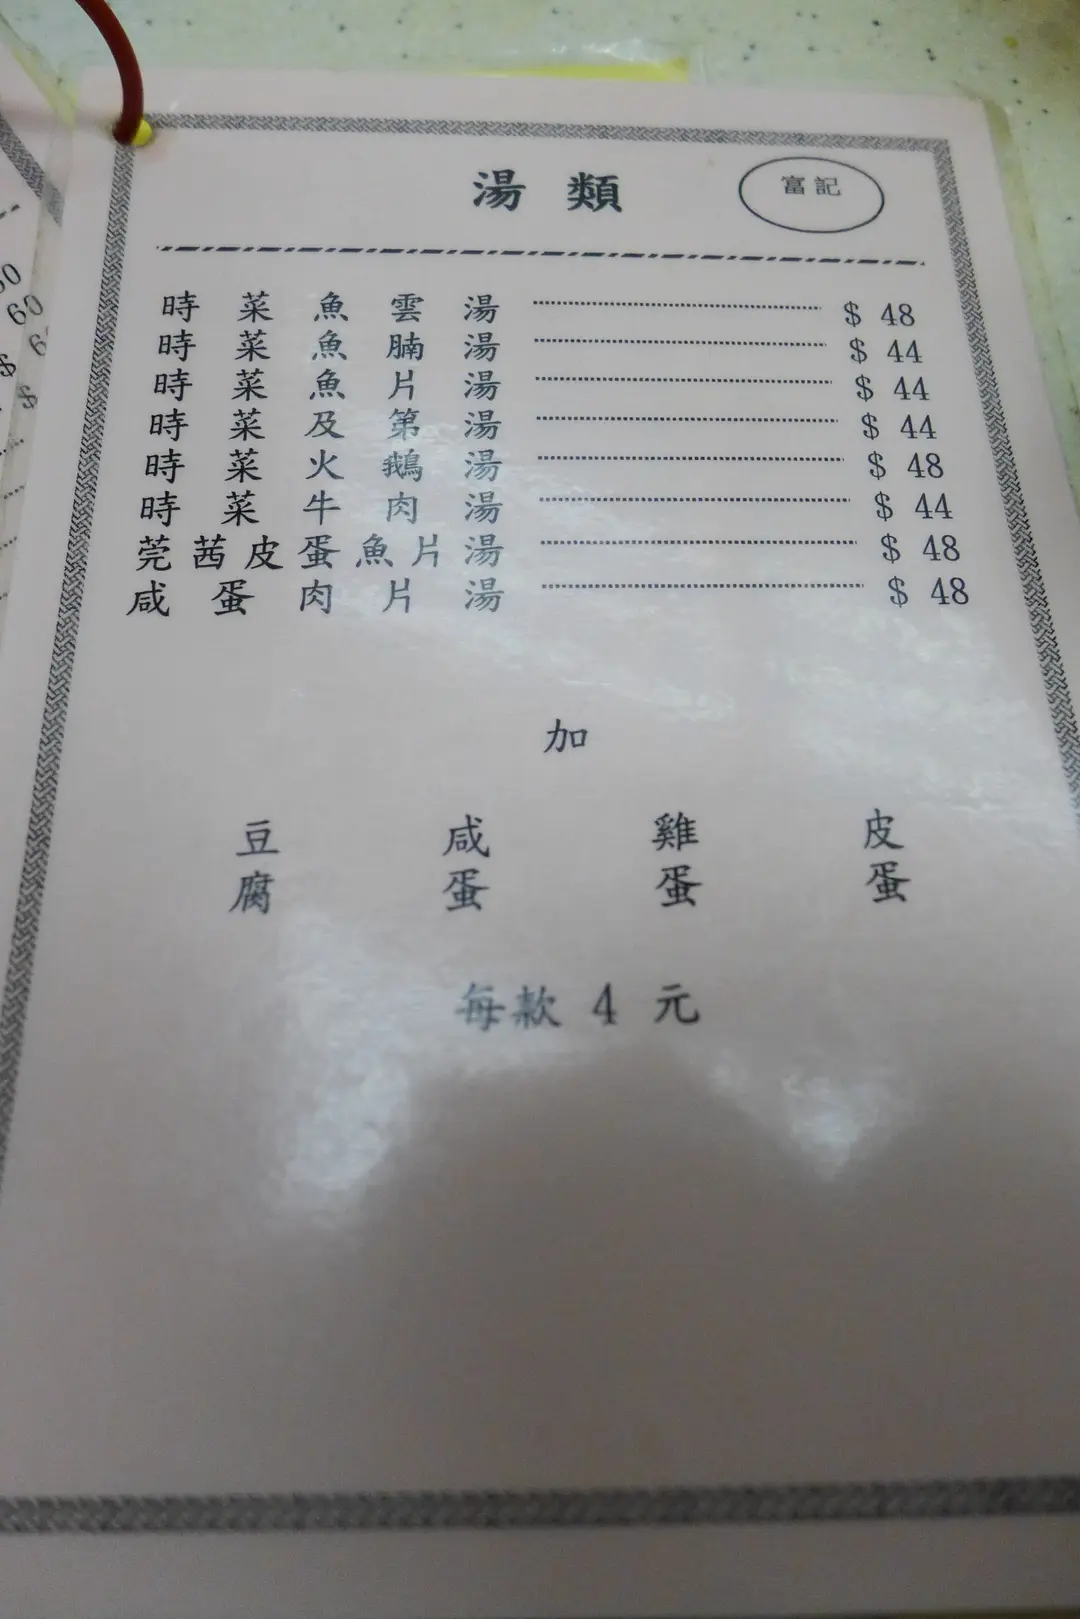 湯類
富記
時菜魚雲湯 $ 48
時菜魚腩湯 $ 44
時菜魚片湯 $ 44
時菜及第湯 $ 44
時菜火鵝湯 $ 48
時菜牛肉湯 $ 44
莞茜皮蛋魚片湯 $ 48
咸蛋肉片湯 $ 48
加
豆腐 咸蛋 雞蛋 皮蛋
每款 4 元
60
$ 6
$